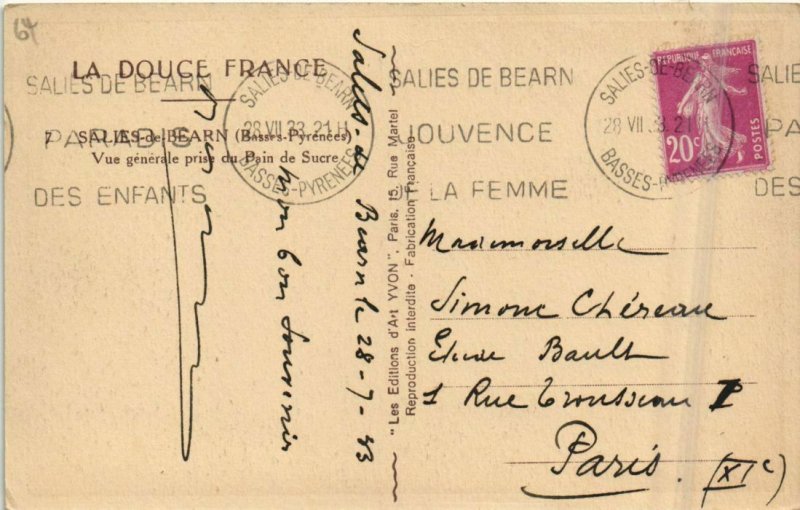 64
LA DOUCE FRANCE
SALIES DE BEARN
PARADIS
DES ENFANTS
7 SALIES-de-BÉARN (Basses-Pyrénées)
Vue générale prise du Pain de Sucre
SALIES-DE-BEARN
28 VII 33. 21 H
BASSES-PYRENÉES
SALIES DE BEARN
JOUVENCE
DE LA FEMME
SALIES-DE-BEARN
28 VII 33. 21 H
BASSES-PYRENÉES
SALIE
PA
DES
RÉPUBLIQUE FRANÇAISE
20c
POSTES
Salies-de Bearn le 28-7-33
Mon bon Souvenir
"Les Editions d'Art YVON", Paris, 15, Rue Martel
Reproduction interdite - Fabrication Française
Mademoiselle
Simone Chéreau
Bault
1 Rue Trousseau
Paris. (XIe)